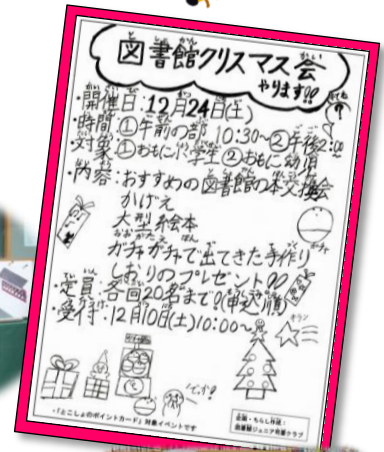 図書館クリスマス会
やります!!
・開催日:12月24日(土)
・時間:①午前の部 10:30~②午後2:00
・対象:①おもに小学生②おもに幼児
・内容:おすすめの図書館の本交換会
かげえ
大型絵本
ガチャガチャで出てきた手作り
しおりのプレゼント!!
・定員:各回20名まで!(申込順)
・受付:12月10日(土)10:00~
キラン
・「としょのポイントカード」対象イベントです
企画・ちらし作成:
図書館ジュニア司書クラブ